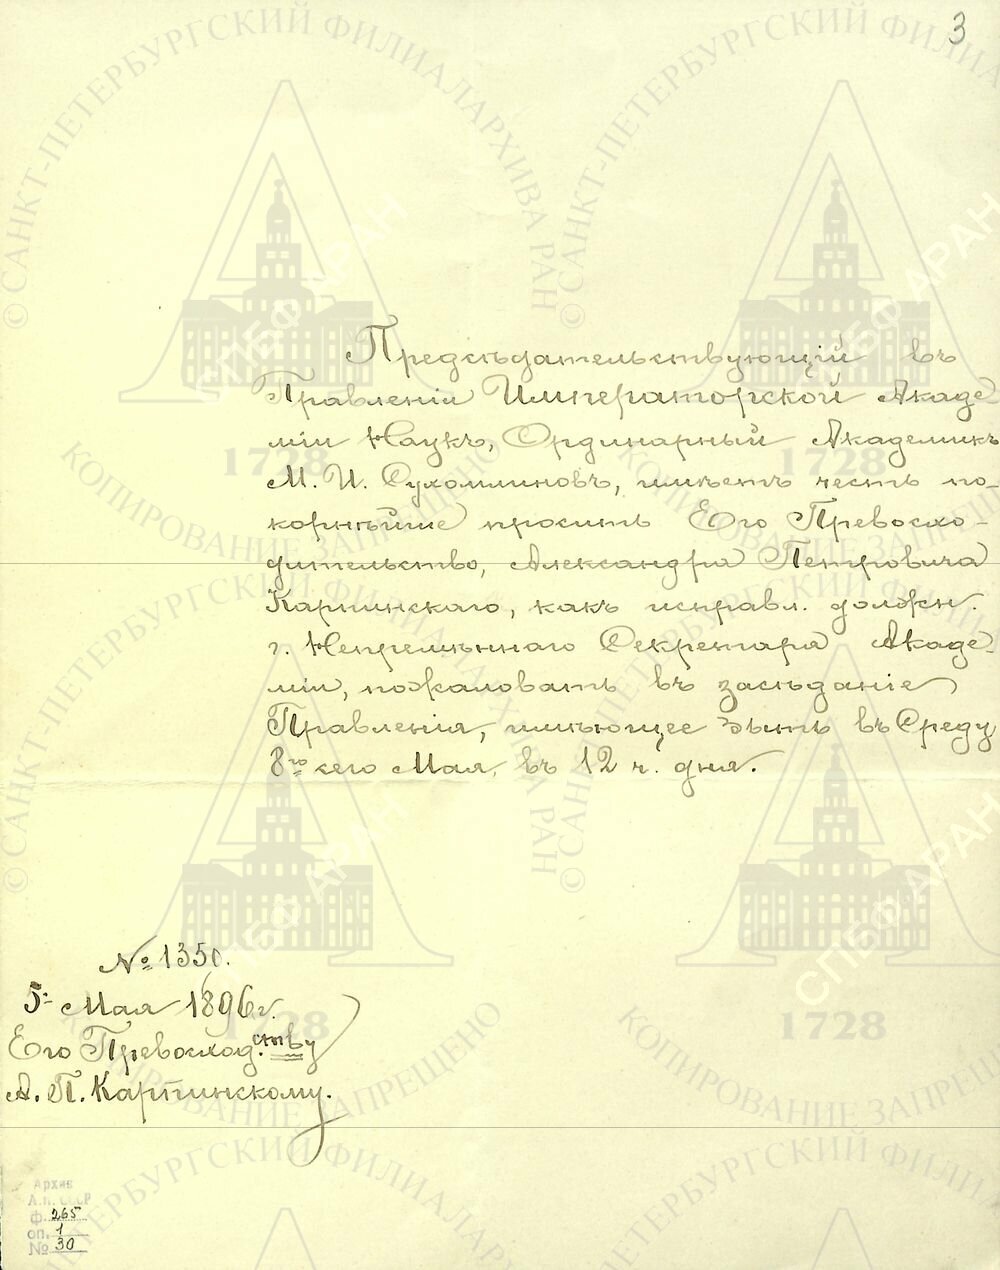 3
Предсѣдательствующій въ
Правленіи Императорской Академ
міи Наукъ, Ординарный Академикъ
М. И. Сухомлиновъ, имѣетъ честь по-
корнѣйше просить Его Превосхо-
дительство, Александра Петровича
Карпинскаго, какъ исправл. должн.
г. Непремѣннаго Секретаря Акаде-
міи, пожаловать въ засѣданіе
Правленія, имѣющее быть въ Среду
8го сего Мая, въ 12 ч. дня.
№ 1350.
5 Мая 1896 г.
Его Превосход.ству
А. П. Карпинскому.
Архив
А.Н. СССР
ф. 265
оп. 1
№ 30
© САНКТ-ПЕТЕРБУРГСКИЙ ФИЛИАЛ АРХИВА РАН
СПБФ АРАН
1728
КОПИРОВАНИЕ ЗАПРЕЩЕНО